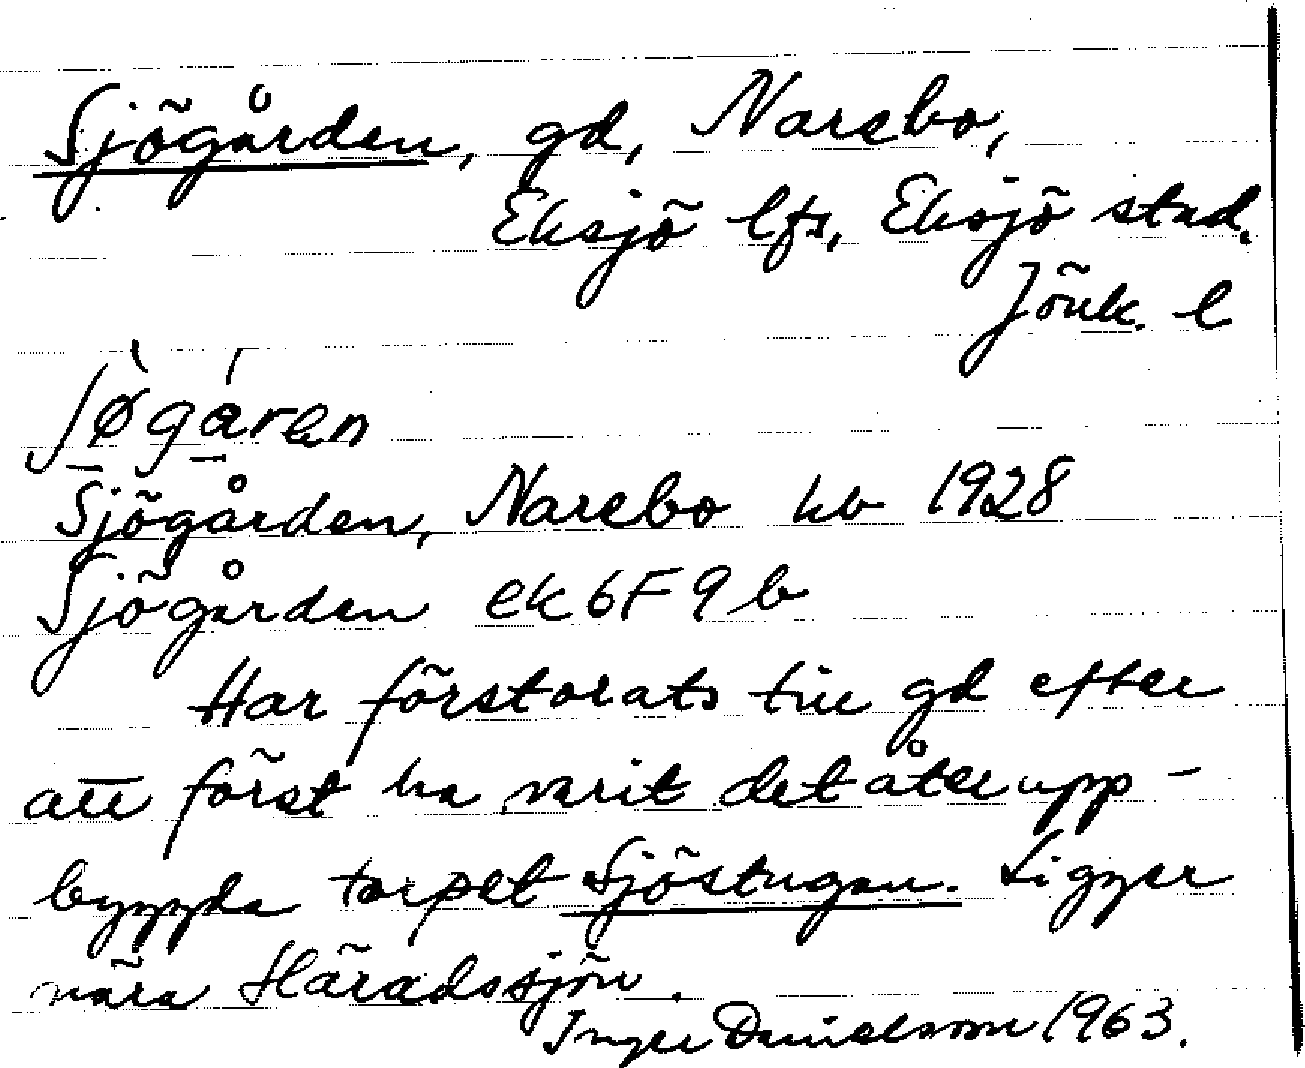 Sjögården, gd, Narebo,
Eksjö lfs, Eksjö stad.
Jönk. l
ʃø̀gåren
Sjögården, Narebo kb 1928
Sjögården ek 6F 9b
Har förstorats till gd efter
att först ha varit det återupp-
byggda torpet Sjöstugan. Ligger
nära Häradssjön.
Inger Danielsson 1963.